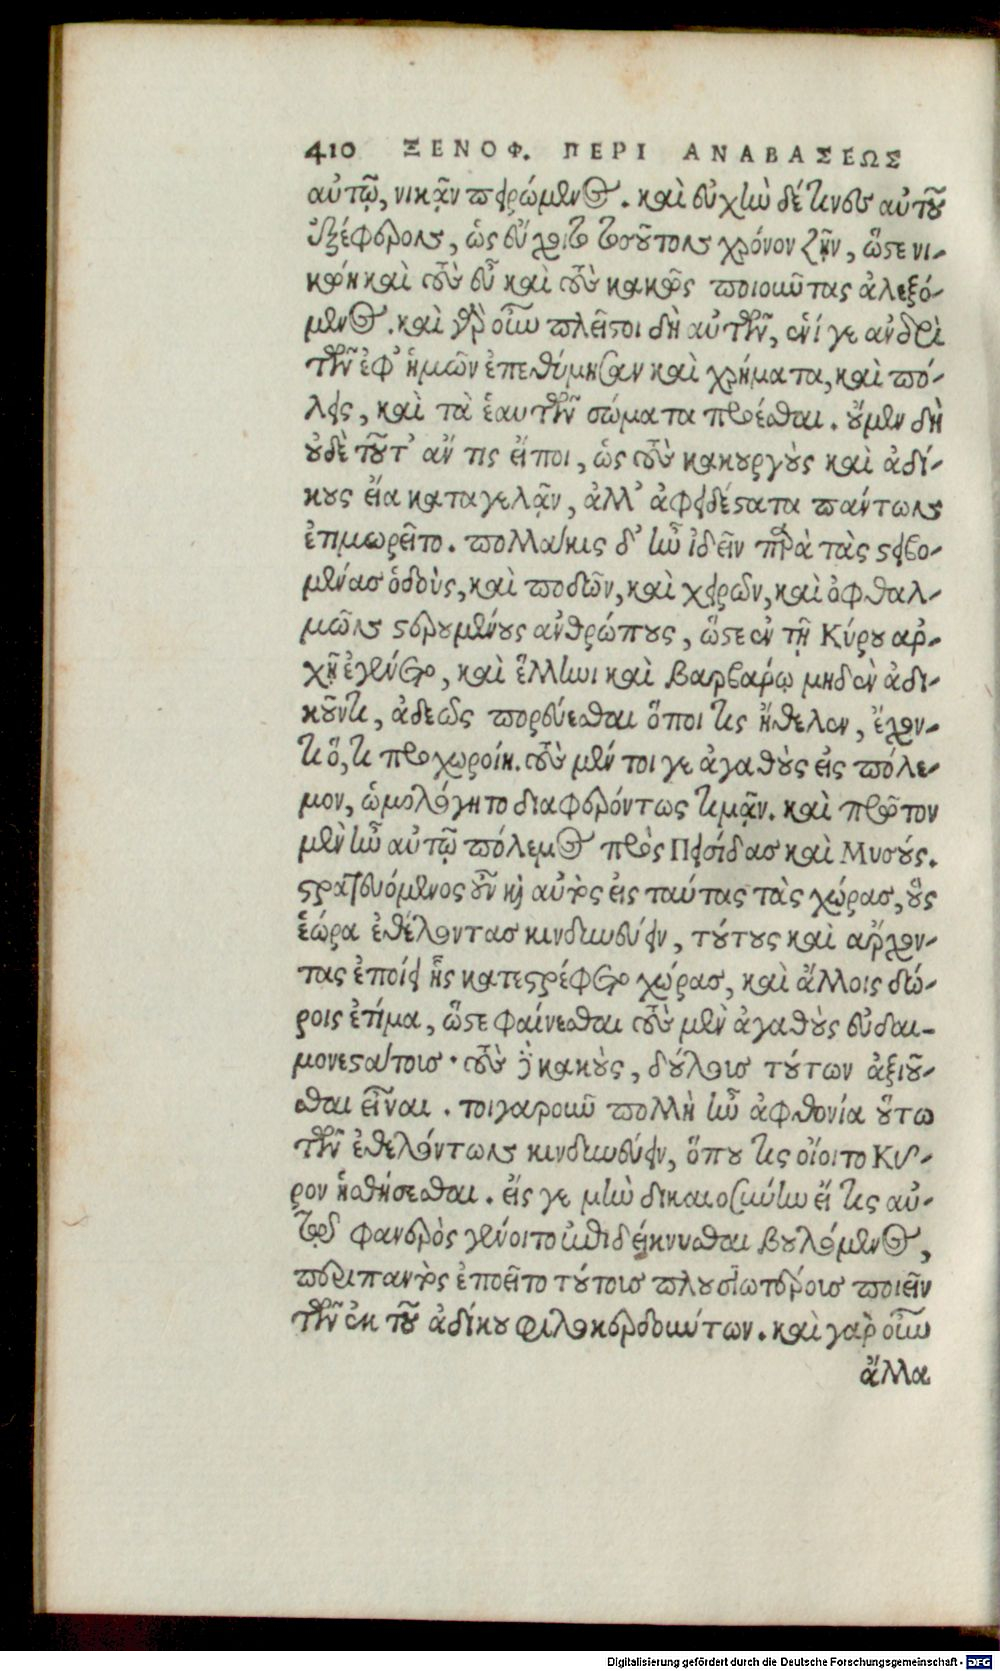 410 ΞΕΝΟΦ. ΠΕΡΙ ΑΝΑΒΑΣΕΩΣ
αὐτῷ, νικᾷν πειρώμενος. καὶ εὐχὴν δέ τινες αὐτοῦ
ἐξέφερον, ὡς εὔχοιτο τοσοῦτον χρόνον ζῇν, ὥστε νι-
κῴη καὶ τοὺς εὖ καὶ τοὺς κακῶς ποιοῦντας ἀλεξό-
μενος. καὶ γὰρ οὖν πλεῖστοι δὴ αὐτῶν, ἑνί γε ἀνδρὶ
τῶν ἐφ' ἡμῶν ἐπεθύμησαν καὶ χρήματα, καὶ πό-
λεις, καὶ τὰ ἑαυτῶν σώματα προέσθαι. οὐ μὲν δὴ
οὐδὲ τοῦτ' ἄν τις εἴποι, ὡς τοὺς κακούργους καὶ ἀδί-
κους εἴα καταγελᾷν, ἀλλ' ἀφειδέστατα πάντων
ἐτιμωρεῖτο. πολλάκις δ' ἦν ἰδεῖν παρὰ τὰς στειβο-
μένας ὁδοὺς, καὶ ποδῶν, καὶ χειρῶν, καὶ ὀφθαλ-
μῶν στερουμένους ἀνθρώπους, ὥστε ἐν τῇ Κύρου ἀρ-
χῇ ἐγένετο, καὶ ἕλληνι καὶ βαρβάρῳ μηδὲν ἀδι-
κοῦντι, ἀδεῶς πορεύεσθαι ὅποι τις ἤθελεν, ἔχον-
τι ὅ,τι προχωροίη. τοὺς μέν τοι γε ἀγαθοὺς εἰς πόλε-
μον, ὡμολόγητο διαφερόντως τιμᾷν. καὶ πρῶτον
μὲν ἦν αὐτῷ πόλεμος πρὸς Πεισίδας καὶ Μυσούς.
στρατευόμενος οὖν καὶ αὐτὸς εἰς ταύτας τὰς χώρας, οὓς
ἑώρα ἐθέλοντας κινδυνεύειν, τούτους καὶ ἄρχον-
τας ἐποίει ἧς κατεστρέφετο χώρας, καὶ ἄλλοις δώ-
ροις ἐτίμα, ὥστε φαίνεσθαι τοὺς μὲν ἀγαθοὺς εὐδαι-
μονεστάτοις· τοὺς δὲ κακοὺς, δούλοις τούτων ἀξιοῦ-
σθαι εἶναι. τοιγαροῦν πολλὴ ἦν ἀφθονία οὕτω
τῶν ἐθελόντων κινδυνεύειν, ὅπου τις οἴοιτο Κῦ-
ρον ᾐσθήσεσθαι. εἴς γε μὴν δικαιοσύνην εἴ τις αὐ-
τῷ φανερὸς γένοιτο ἐπιδείκνυσθαι βουλόμενος,
περιπαντὸς ἐποιεῖτο τούτοις πλουσιωτέροις ποιεῖν
τῶν ἐκ τοῦ ἀδίκου φιλοκερδούντων. καὶ γὰρ οὖν
ἄλλα
Digitalisierung gefördert durch die Deutsche Forschungsgemeinschaft - DFG